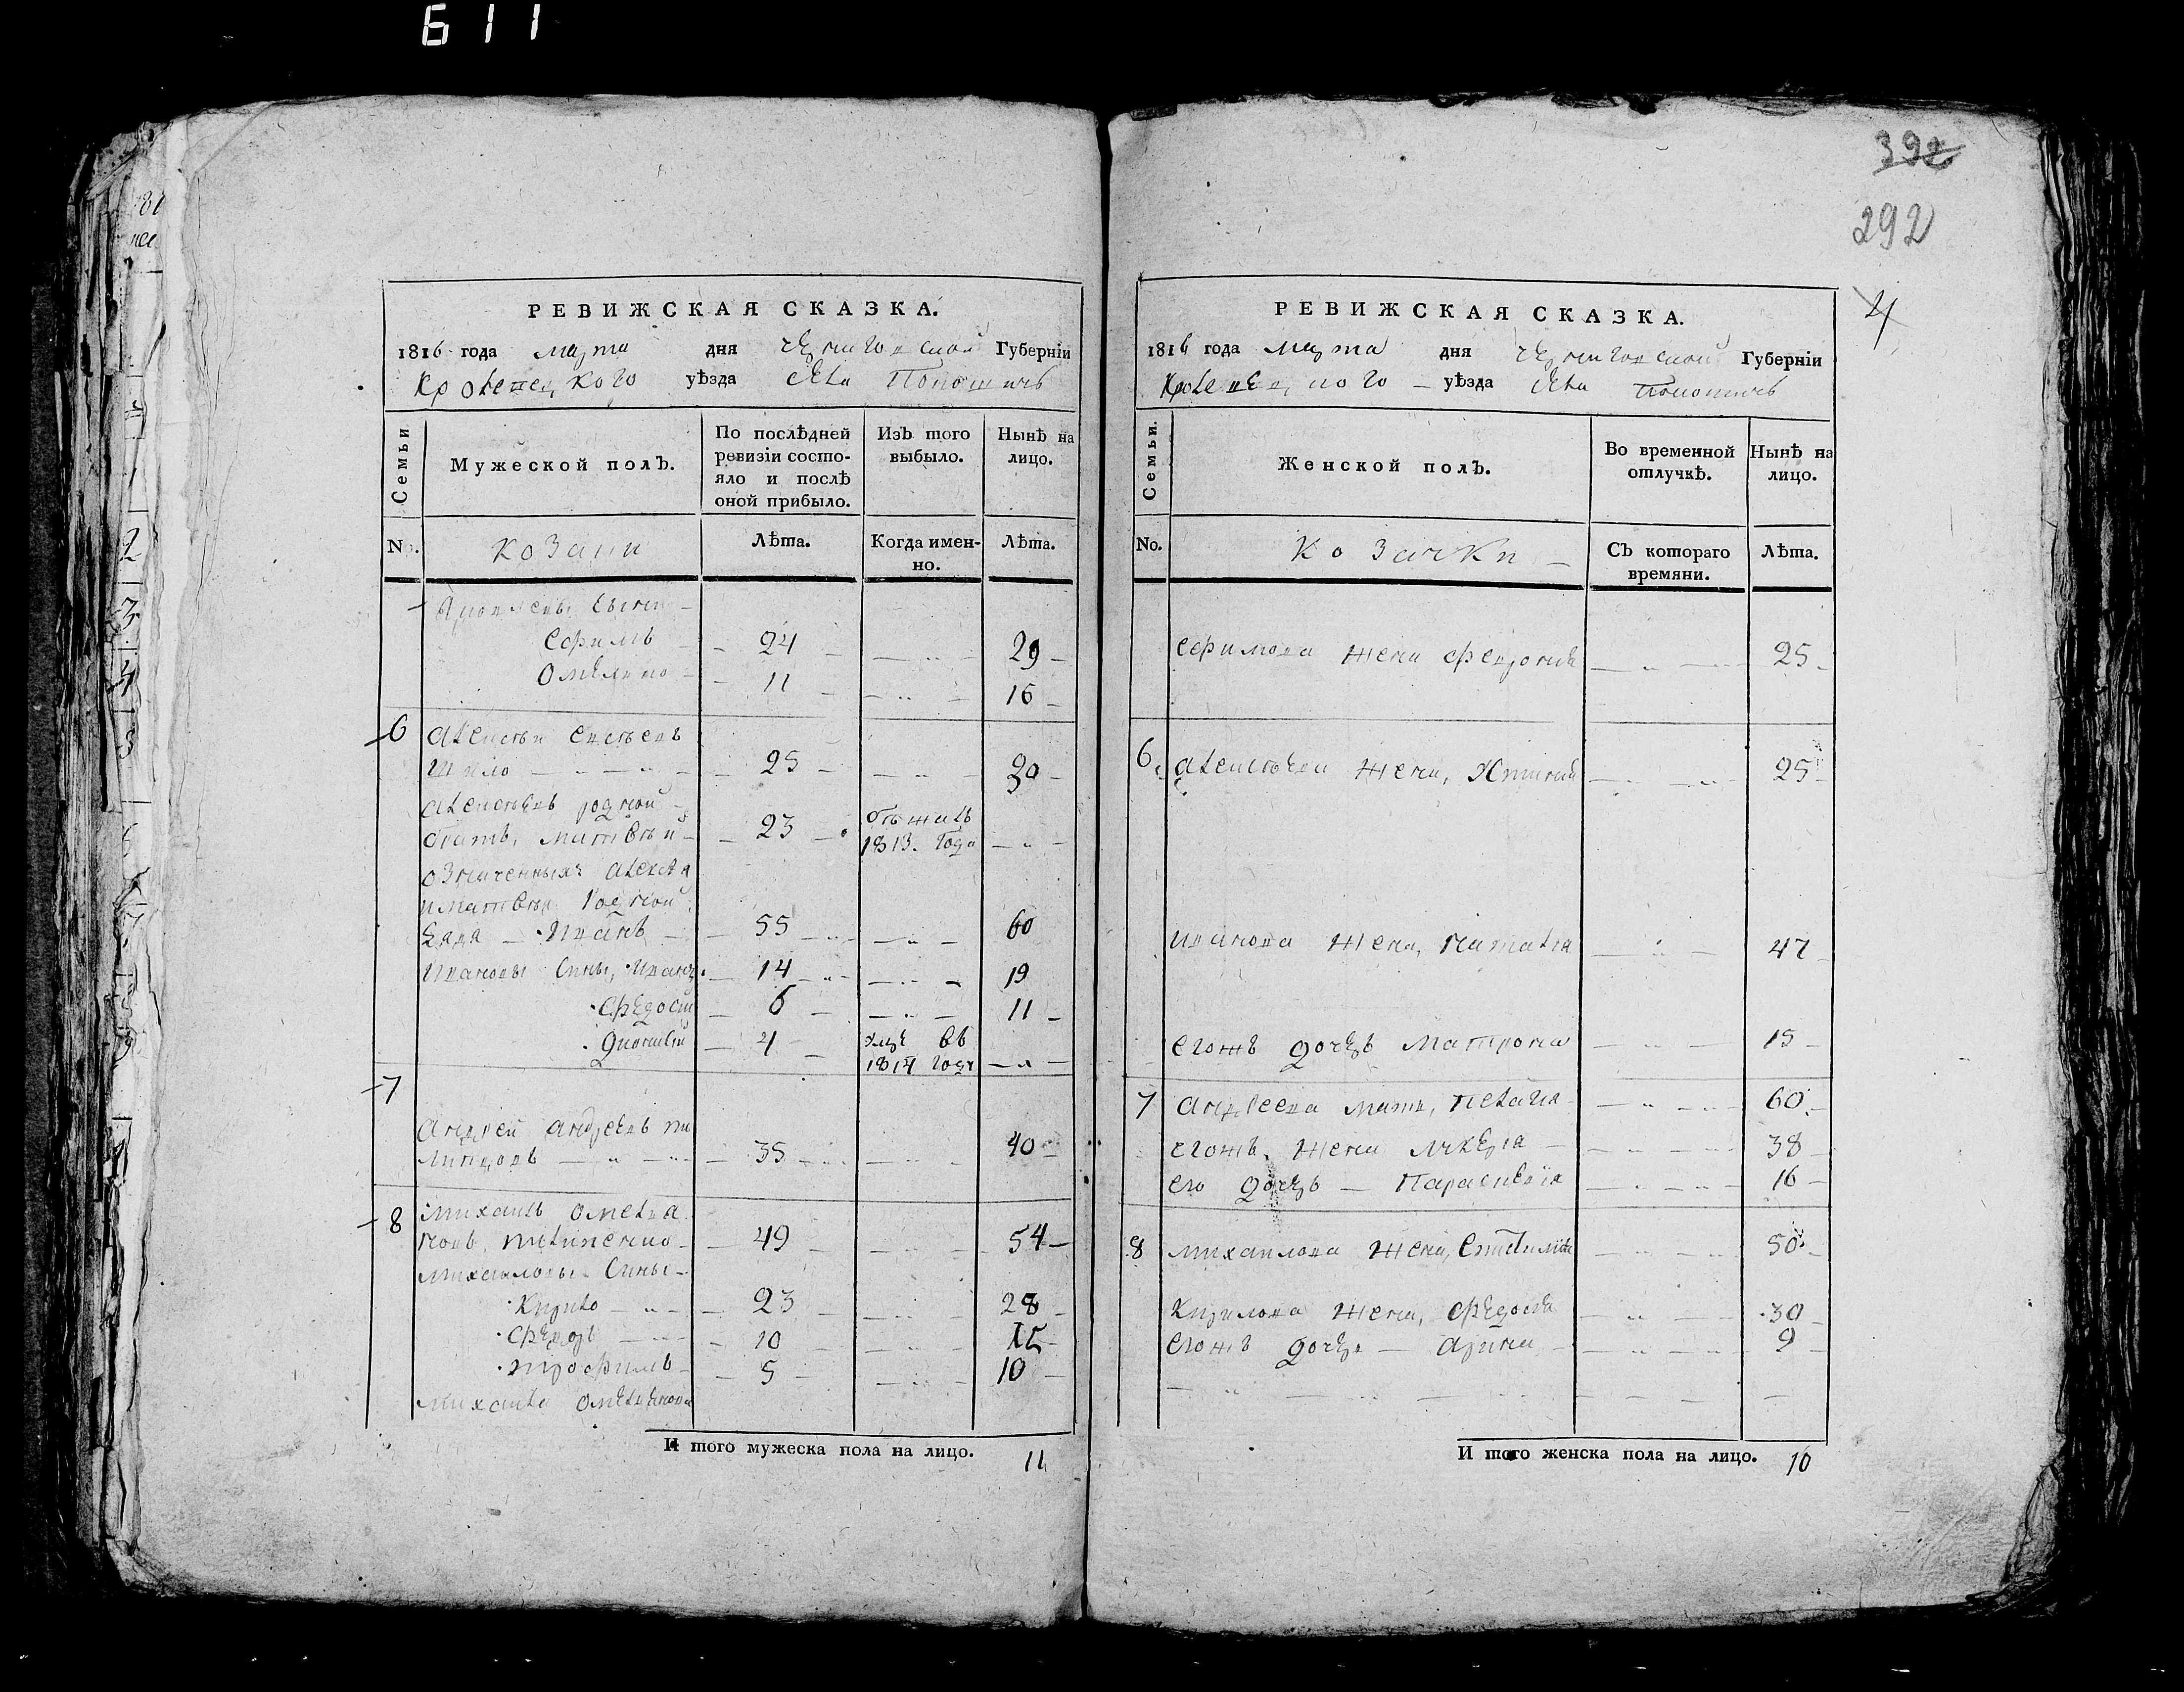 611
392
292
4
РЕВИЖСКАЯ СКАЗКА.
1816 года марта дня Черниговской Губерніи
Кролевецкого уѣзда села
Семьи
Мужеской полъ.
По послѣдней ревизіи состо-
яло и послѣ
оной прибыло.
Изъ того
выбыло.
Нынѣ на
лицо.
No.
Козаки
Лѣта.
Когда имен-
но.
Лѣта.
Яковлевы сыни
Ефимъ 24 29
Омелько 11 16
6 Алексѣй Евсѣевъ
Шило 25 30
Алексѣевъ родной
братъ, Матвѣй 23 бѣжалъ 1813. года
означенныхъ Алексѣя
и Матвѣя родной
дядя Иванъ 55 60
Ивановы сины, Иванъ 14 19
Федосій 6 11
4 умре въ 1814 году
7
Андрей Андреевъ Пи
липцовъ 35 40
8 Михаилъ Омелья
новъ, 49 54
Михаиловы сины
Кирило 23 28
Федоръ 10 15
Трофимъ 5 10
Михаила Омельянова
И того мужеска пола на лицо. 11
РЕВИЖСКАЯ СКАЗКА.
1816 года марта дня Черниговской Губерніи
Кролевецкого уѣзда села
Семьи.
Женской полъ.
Во временной
отлучкѣ.
Нынѣ на
лицо.
No.
Козачки
Съ котораго
времяни.
Лѣта.
Ефимова жена Феврония 25
6 Алексѣева жена, 25
Иванова жена, Наталія 47
Егожъ дочерь Матрона 15
7 Андреева мать, Пелагия 60
Егожъ жена Лукерія 38
Его дочерь Парасковія 16
8 Михаилова жена, 50
Кирилова жена, Федосія 30
Егожъ дочерь Арина 9
И того женска пола на лицо. 10